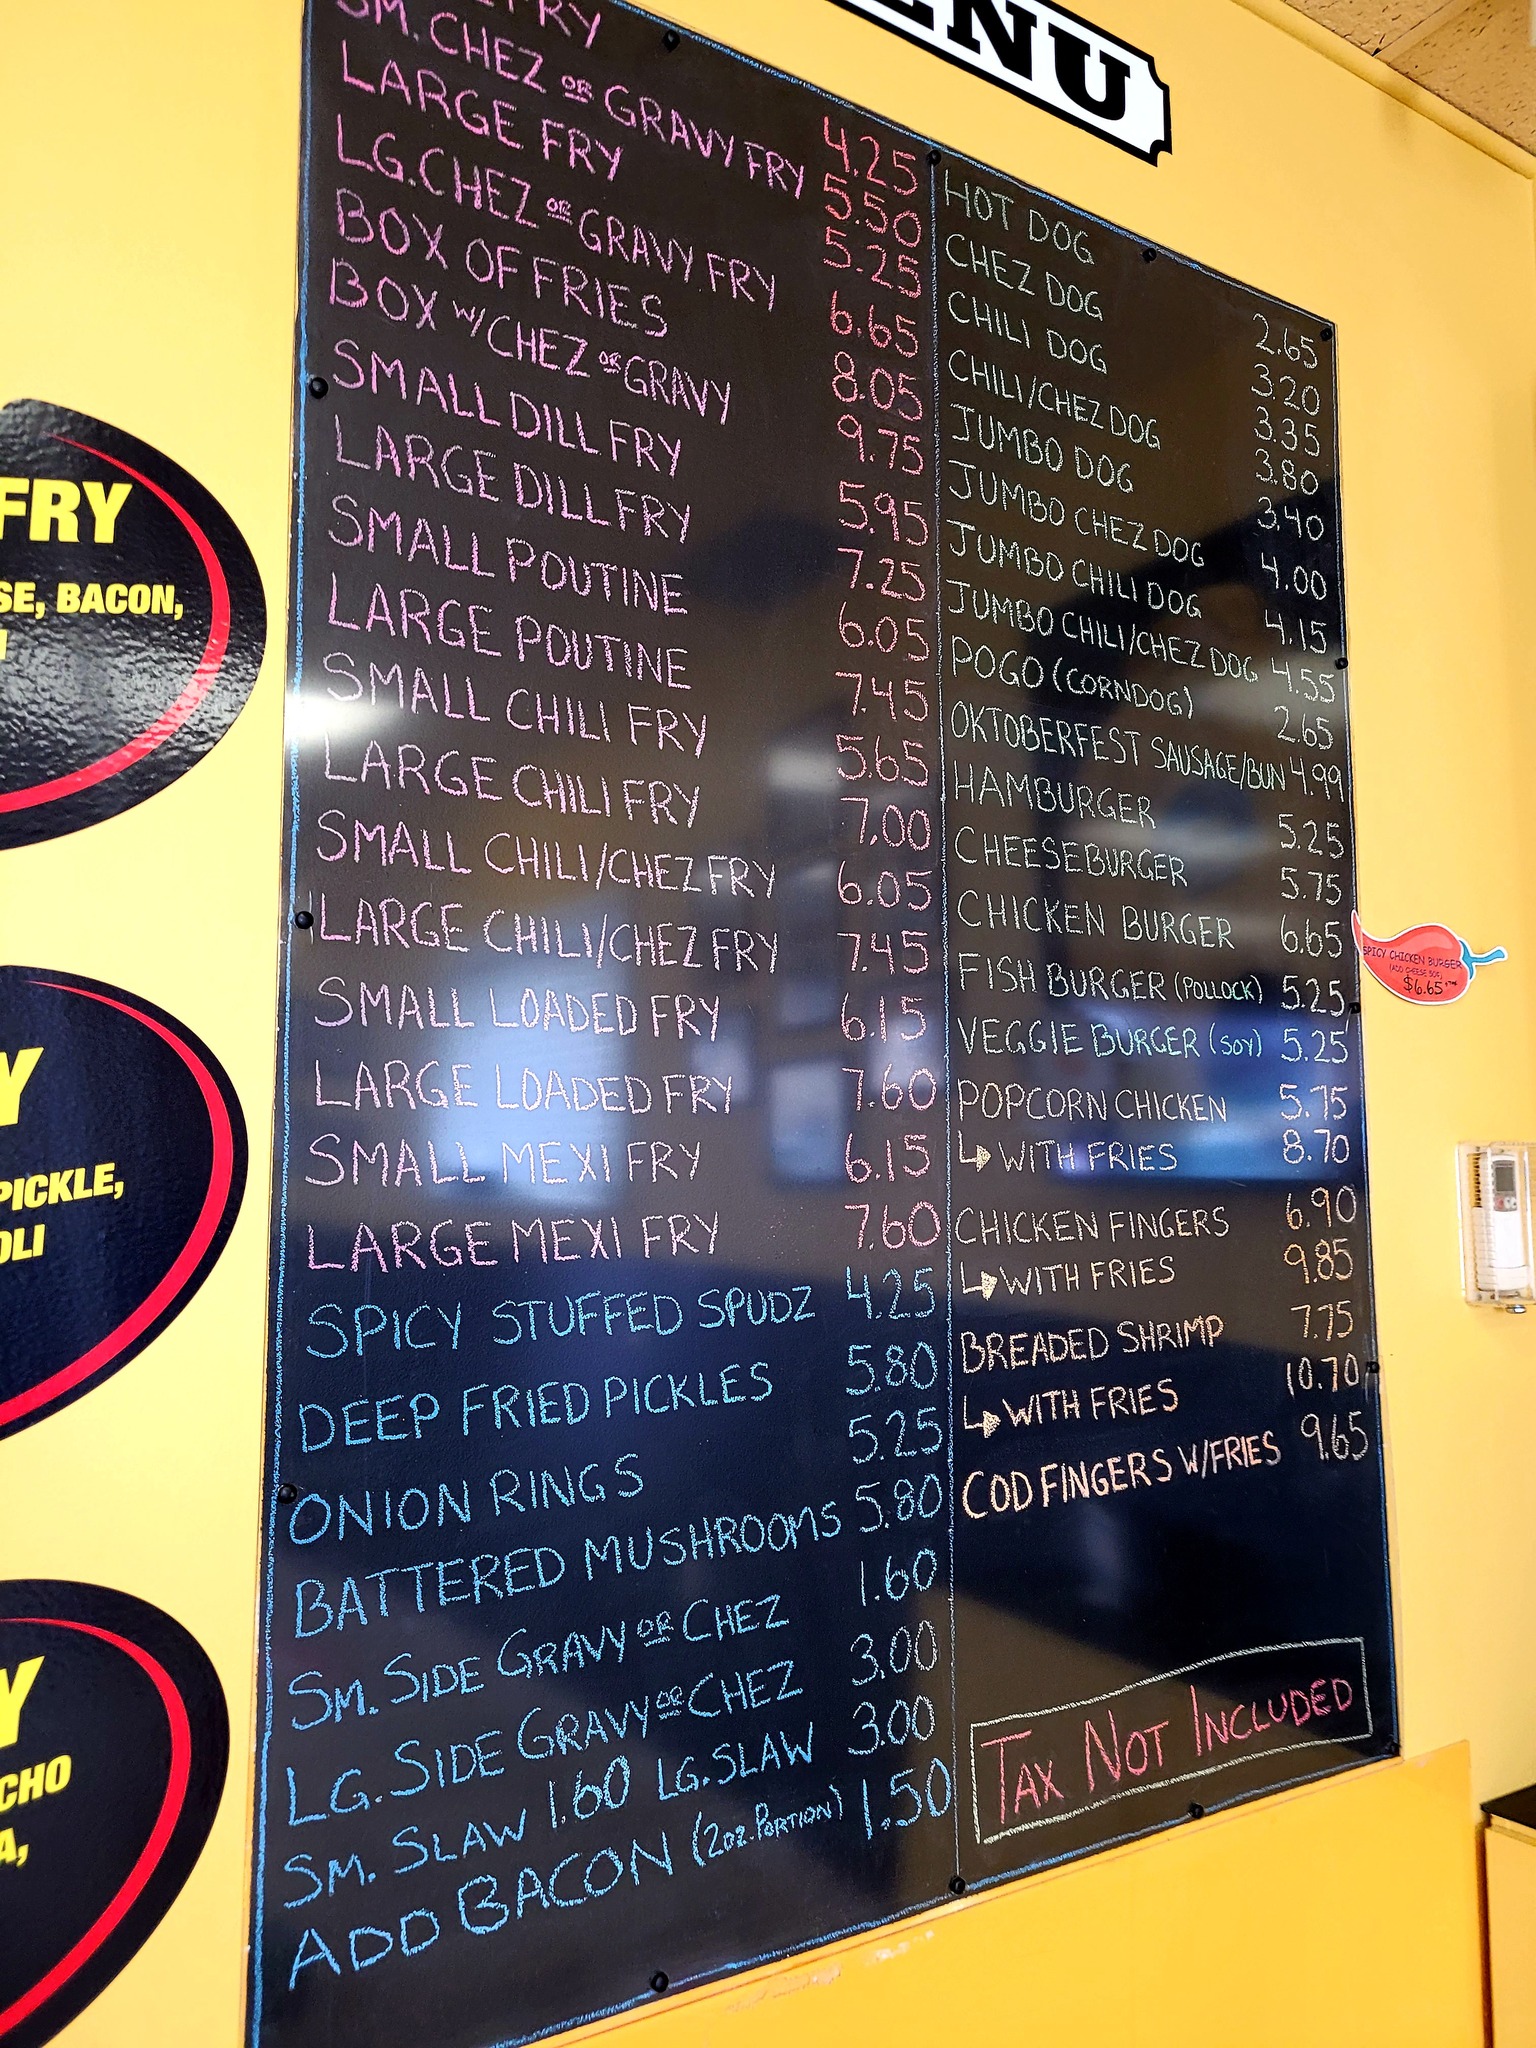 FRY 4.25
SM. CHEZ OR GRAVY FRY 5.50
LARGE FRY 5.25
LG. CHEZ OR GRAVY FRY 6.65
BOX OF FRIES 8.05
BOX W/ CHEZ OR GRAVY 9.75
SMALL DILL FRY 5.95
LARGE DILL FRY 7.25
SMALL POUTINE 6.05
LARGE POUTINE 7.45
SMALL CHILI FRY 5.65
LARGE CHILI FRY 7.00
SMALL CHILI/CHEZ FRY 6.05
LARGE CHILI/CHEZ FRY 7.45
SMALL LOADED FRY 6.15
LARGE LOADED FRY 7.60
SMALL MEXI FRY 6.15
LARGE MEXI FRY 7.60
SPICY STUFFED SPUDZ 4.25
DEEP FRIED PICKLES 5.80
ONION RINGS 5.25
BATTERED MUSHROOMS 5.80
SM. SIDE GRAVY OR CHEZ 1.60
LG. SIDE GRAVY OR CHEZ 3.00
SM. SLAW 1.60 LG. SLAW 3.00
ADD BACON (2oz. PORTION) 1.50
HOT DOG 2.65
CHEZ DOG 3.20
CHILI DOG 3.35
CHILI/CHEZ DOG 3.80
JUMBO DOG 3.40
JUMBO CHEZ DOG 4.00
JUMBO CHILI DOG 4.15
JUMBO CHILI/CHEZ DOG 4.55
POGO (CORNDOG) 2.65
OKTOBERFEST SAUSAGE/BUN 4.99
HAMBURGER 5.25
CHEESEBURGER 5.75
CHICKEN BURGER 6.65
FISH BURGER (POLLOCK) 5.25
VEGGIE BURGER (SOY) 5.25
POPCORN CHICKEN 5.75
↳ WITH FRIES 8.70
CHICKEN FINGERS 6.90
↳ WITH FRIES 9.85
BREADED SHRIMP 7.75
↳ WITH FRIES 10.70
COD FINGERS W/FRIES 9.65
TAX NOT INCLUDED
SPICY CHICKEN BURGER
$6.65
FRY
SE, BACON,
Y
PICKLE,
OLI
Y
CHO
A,
ENU